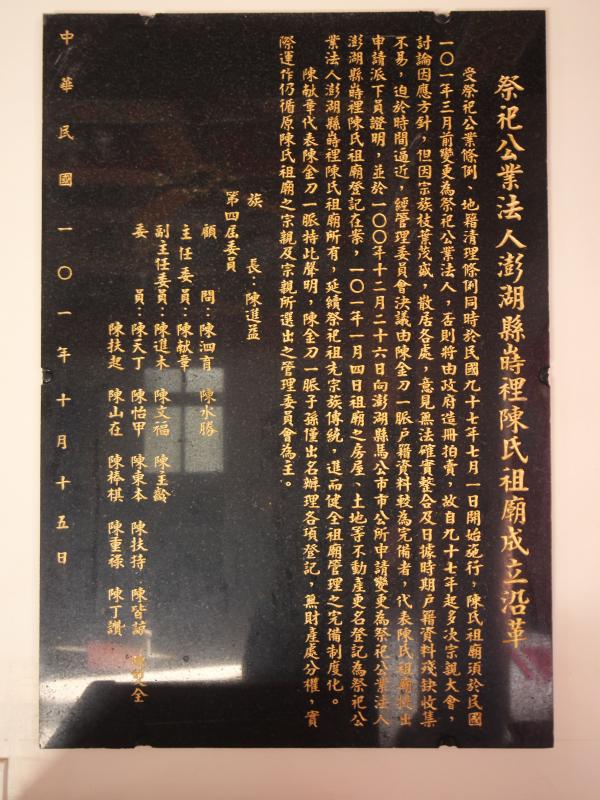 祭祀公業法人澎湖縣嵵裡陳氏祖廟成立沿革
受祭祀公業條例、地籍清理條例同時於民國九十七年七月一日開始施行，陳氏祖廟須於民國
一〇一年三月前變更為祭祀公業法人，否則將由政府造冊拍賣，故自九十七年起多次宗親大會，
討論因應方針，但因宗族枝葉茂盛，散居各處，意見無法確實整合及日據時期戶籍資料殘缺收集
不易，迫於時間逼近，經管理委員會決議由陳金刀一脈戶籍資料較為完備者，代表陳氏祖廟提出
申請派下員證明，並於一〇〇年十二月二十六日向澎湖縣馬公市市公所申請變更為祭祀公業法人
澎湖縣嵵裡陳氏祖廟登記在案，一〇一年一月四日祖廟之房屋、土地等不動產更名登記為祭祀公
業法人澎湖縣嵵裡陳氏祖廟所有，延續祭祀祖先宗族傳統，進而健全祖廟管理之完備制度化。
陳猷章代表陳金刀一脈持此聲明，陳金刀一脈子孫僅出名辦理各項登記，無財產處分權，實
際運作仍循原陳氏祖廟之宗親及宗親所選出之管理委員會為主。
族　　長：陳進益
第四屆委員
顧　　問：陳泗育　陳水勝
主任委員：陳猷章
副主任委員：陳進木　陳文福　陳主齡
委　　員：陳天丁　陳怡甲　陳東本　陳扶持　陳皆諒　全
陳扶起　陳山在　陳棒棋　陳重祿　陳丁讚
中華民國一〇一年十月十五日